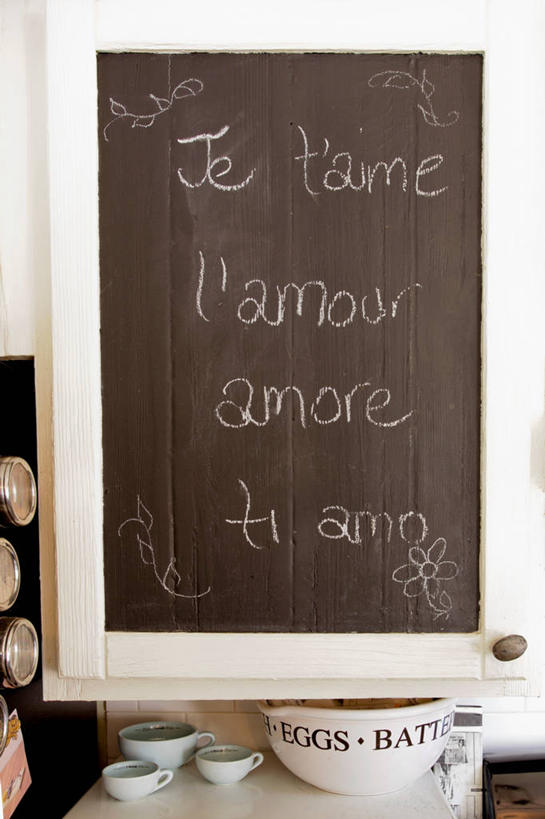 Je t'aime
l'amour
amore
ti amo
· EGGS · BATTE